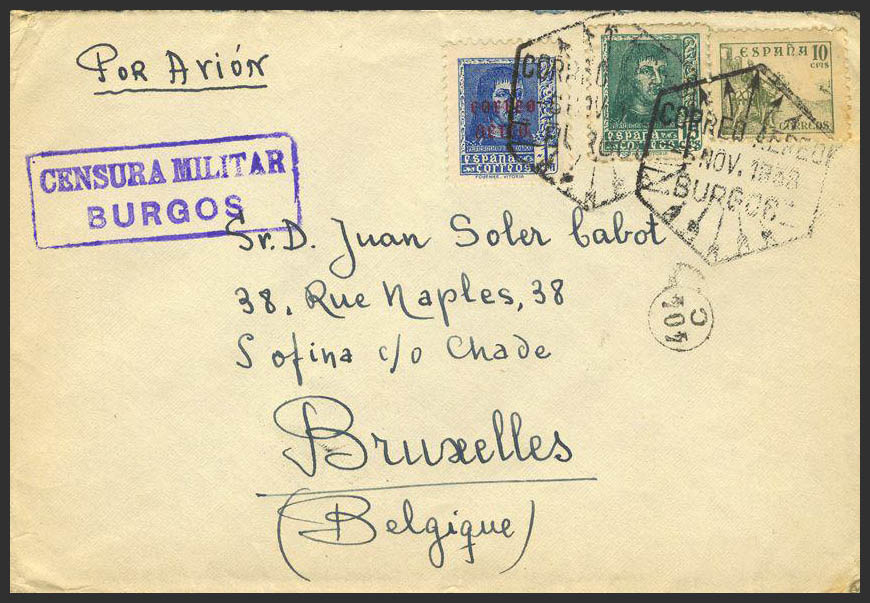 Por Avión
correo
aéreo
ESPAÑA
CORREOS
FOURNIER. VITORIA
ESPAÑA
CORREOS
ESPAÑA 10
CTS
CORREOS
CORREO
NOV
BURGOS
CORREO AEREO
NOV. 1938
BURGOS
CENSURA MILITAR
BURGOS
Sr. D. Juan Soler Cabot
38, Rue Naples, 38
Sofina c/o Chade
Bruxelles
(Belgique)
C
404